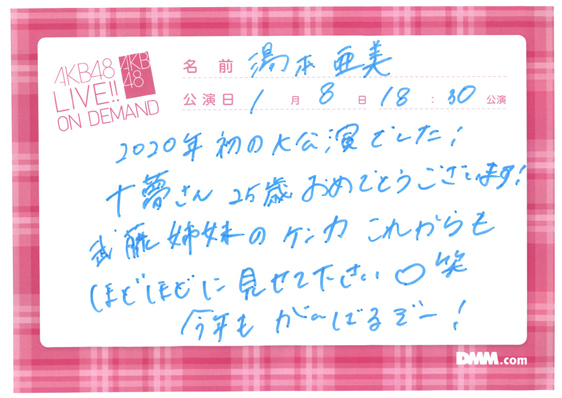 AKB48
LIVE!!
ON DEMAND
AKB
48
名前 湯本亜美
公演日 1月8日 18:30 公演
2020年初のK公演でした!
十夢さん25歳おめでとうございます!
武藤姉妹のケンカこれからも
ほどほどに見せて下さい♡笑
今年もがんばるぞー!
DMM.com